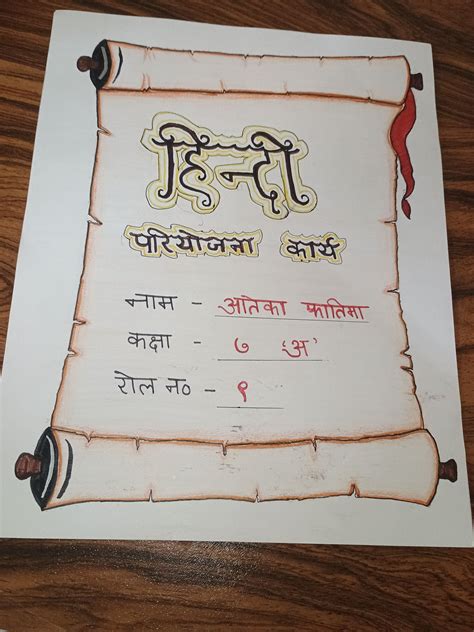 हिन्दी
परियोजना कार्य
नाम - आतेका फातिमा
कक्षा - ७ 'अ'
रोल न० - ९